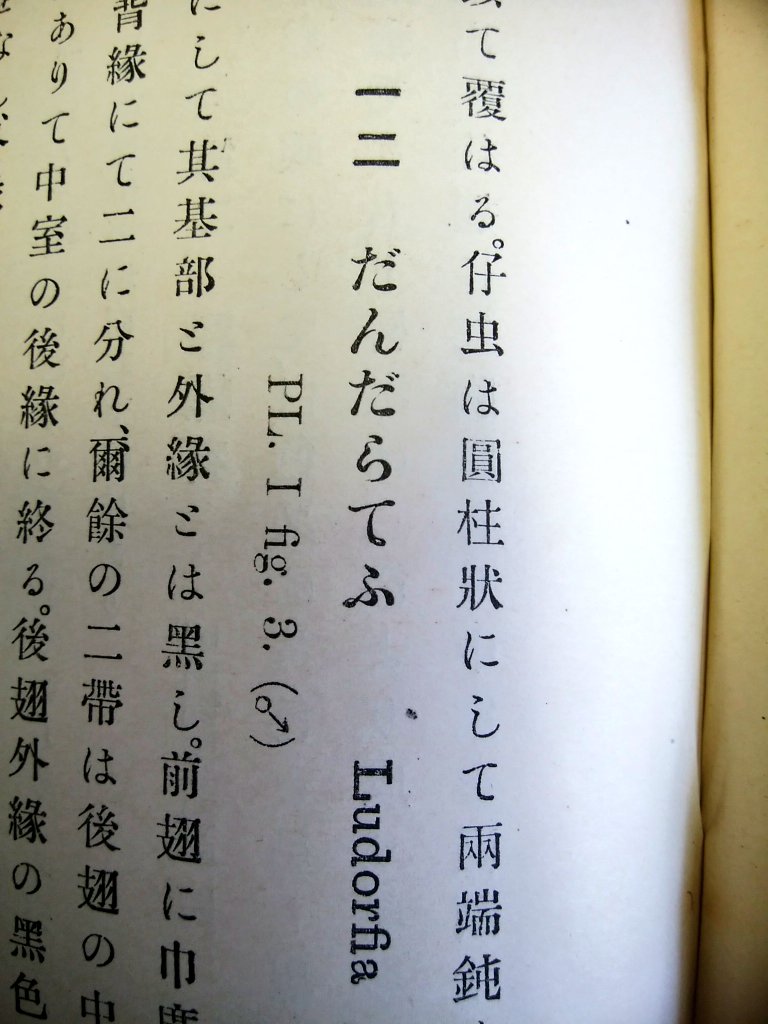 て覆はる。仔虫は圓柱狀にして兩端鈍
一二 だんだらてふ Ludorfia
PL. I fig. 3. (♂)
にして其基部と外緣とは黑し。前翅に巾
背緣にて二に分れ、爾餘の二帶は後翅の中
ありて中室の後緣に終る。後翅外緣の黑色